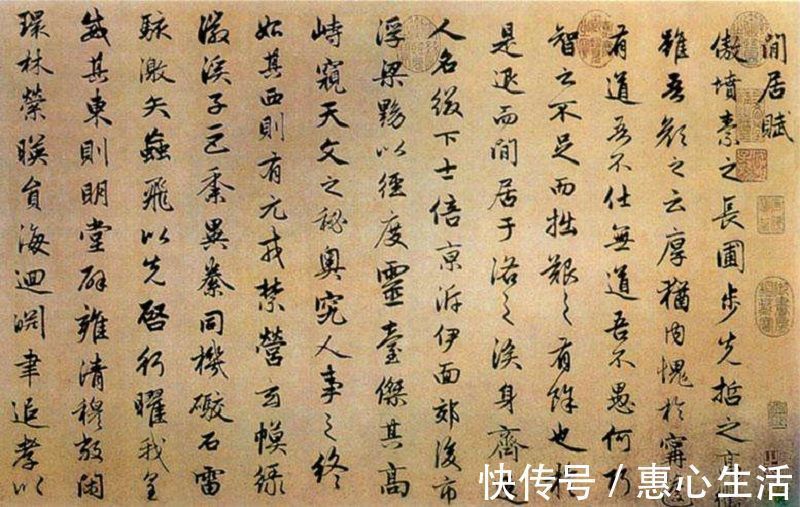 閒居賦
傲墳素之長圃步先哲之高
雖吾顏之云厚猶內愧於甯
有道吾不仕無道吾不愚何巧
智之不足而拙艱之有餘也於
是退而閒居于洛之涘身齊
人名綴下士倍京泝伊面郊後市
浮梁黝以徑度靈臺傑其高
峙窺天文之秘奧究人事之終
始其西則有元戎禁營玄幙綠
徽溪子巨黍異絭同機礮石雷
駭激矢蝱飛以先啓行曜我皇
威其東則明堂辟雍清穆敞閑
環林縈暎員海迴淵聿追孝以
快传号 / 惠心生活